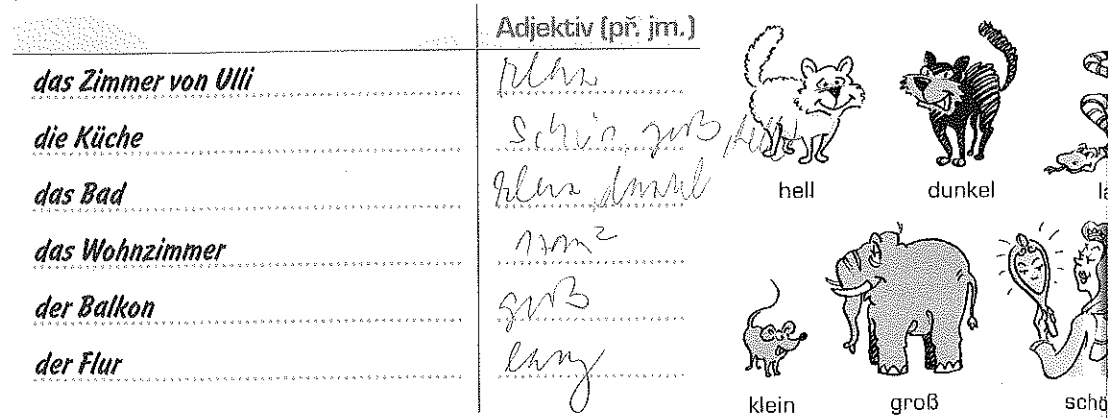 Adjektiv (př. jm.)
das Zimmer von Ulli klein
die Küche schön, groß, hell
das Bad klein, dunkel
das Wohnzimmer m²
der Balkon groß
der Flur lang
hell dunkel
klein groß